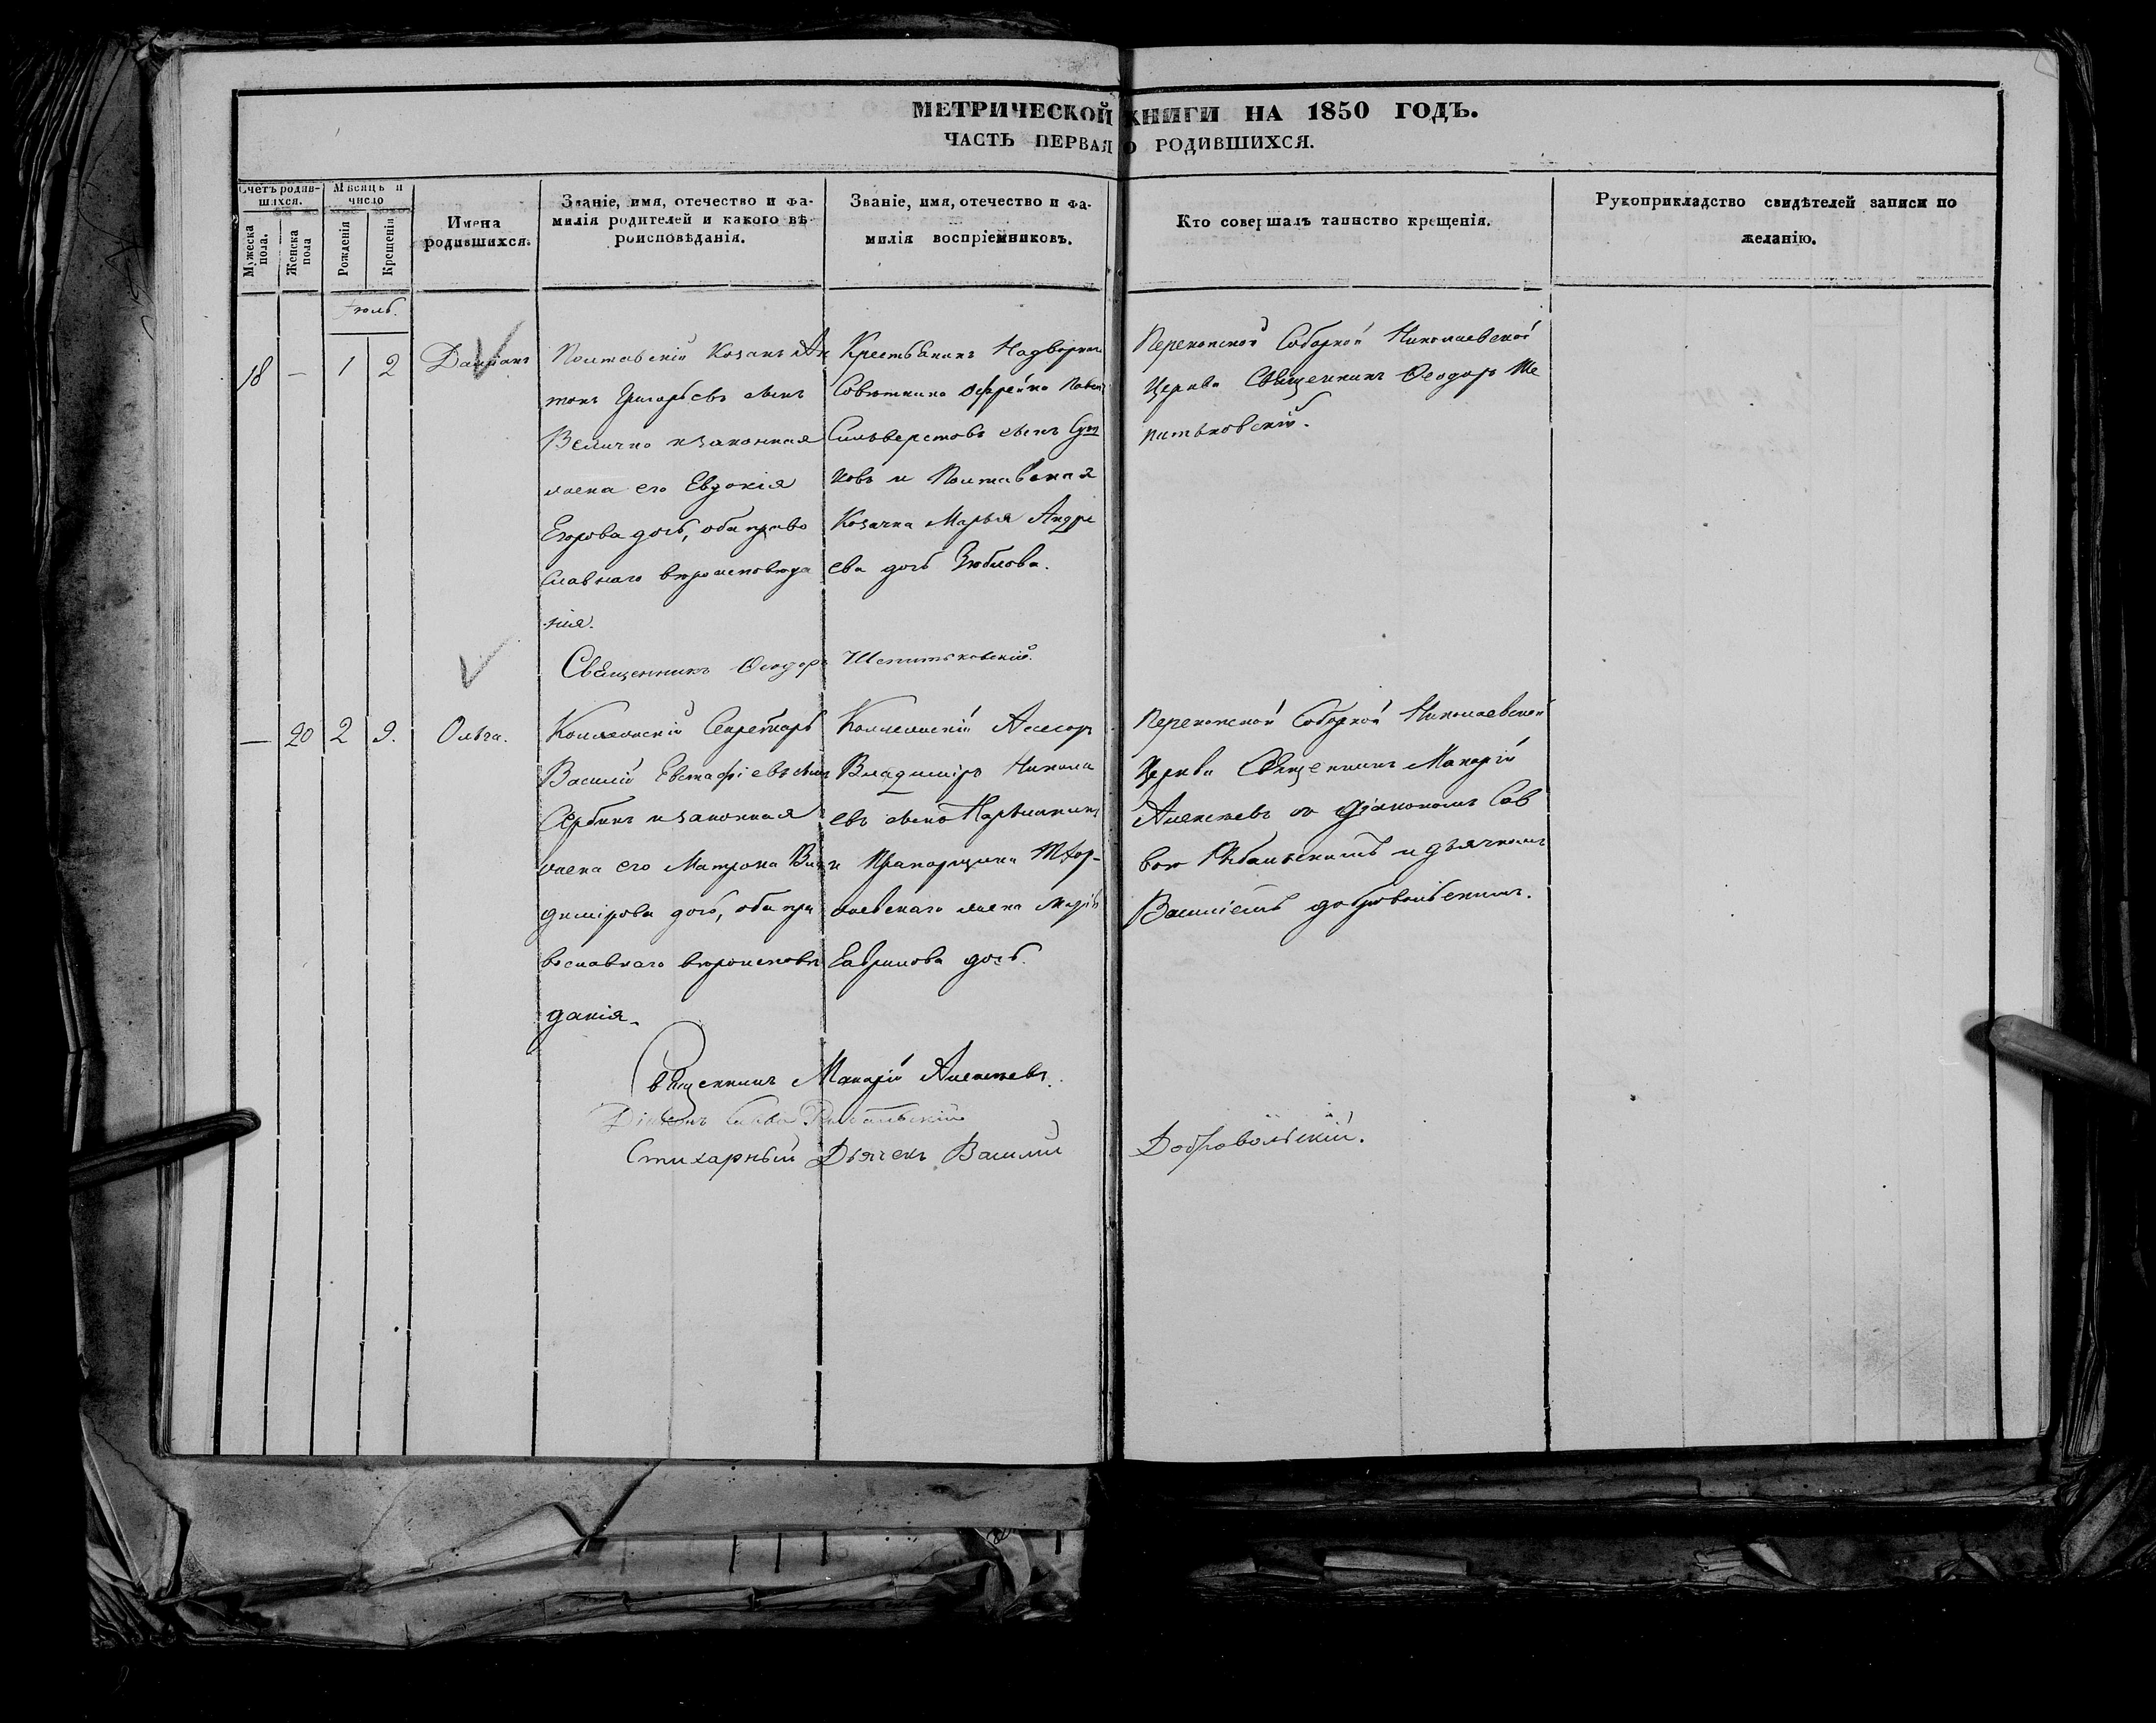 МЕТРИЧЕСКОЙ КНИГИ НА 1850 ГОДЪ.
ЧАСТЬ ПЕРВАЯ О РОДИВШИХСЯ.
Счетъ родив-
шихся.
Мѣсяцъ и
число
Мужеска
пола.
Женска
пола
Рожденія
Крещенія
Имена
родившихся.
Званіе, имя, отечество и фа-
милія родителей и какого вѣ-
роисповѣданія.
Званіе, имя, отечество и фа-
милія воспріемниковъ.
Кто совершалъ таинство крещенія.
Рукоприкладство свидѣтелей записи по
желанію.
Іюль.
18 — 1 2
Полтавскій Козакъ Ан
тонъ Григорьевъ сынъ
Величко и законная
жена его Евдокія
Егорова дочь, оба право
славнаго вѣроисповѣда
нія.
Крестьянинъ Надворнаго
Совѣтника
Сильверстовъ сынъ
ковъ и Полтавская
Козачка Марья Андре
ева дочь
Перекопской Соборной Николаевской
Церкви Священникъ Ѳеодоръ Ше
питьковскій.
Священникъ Ѳеодоръ Шепитьковскій.
— 20 2 9. Ольга.
Коллежскій Секретарь
Василій Евстафіевъ сынъ
Сербинъ и законная
жена его Матрона Вла
димірова дочь, оба пра
вославнаго вѣроисповѣ
данія.
Коллежскій Асесоръ
Владиміръ Никола
евъ сынъ
и Прапорщика
жена Марія
Гаврилова дочь.
Перекопской Соборной Николаевской
Церкви Священникъ Макарій
Алексѣевъ со Діакономъ Сав
вою Рыбальскимъ и дьячкомъ
Василіемъ Добровольскимъ.
Священникъ Макарій Алексѣевъ.
Діаконъ Савва Рыбальскій
Стихарный Дьячекъ Василій Добровольскій.